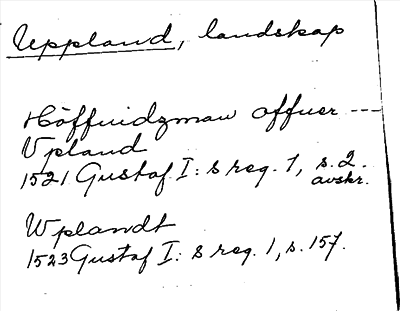 Uppland, landskap
Höffuidzman offuer ---
Vpland
1521 Gustaf I: s reg. 1, s. 2.
avskr.
Wplandt
1523 Gustaf I: s reg. 1, s. 157.